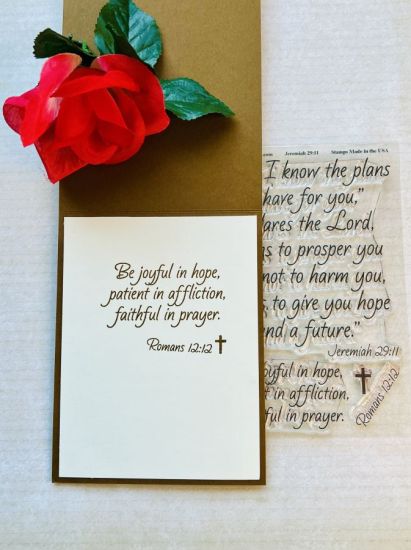 Be joyful in hope,
patient in affliction,
faithful in prayer.
Romans 12:12
Jeremiah 29:11 Stamps Made in the USA
I know the plans
have for you,"
ares the Lord,
to prosper you
not to harm you,
to give you hope
nd a future."
Jeremiah 29:11
oyful in hope,
t in affliction,
ful in prayer.
Romans 12:12